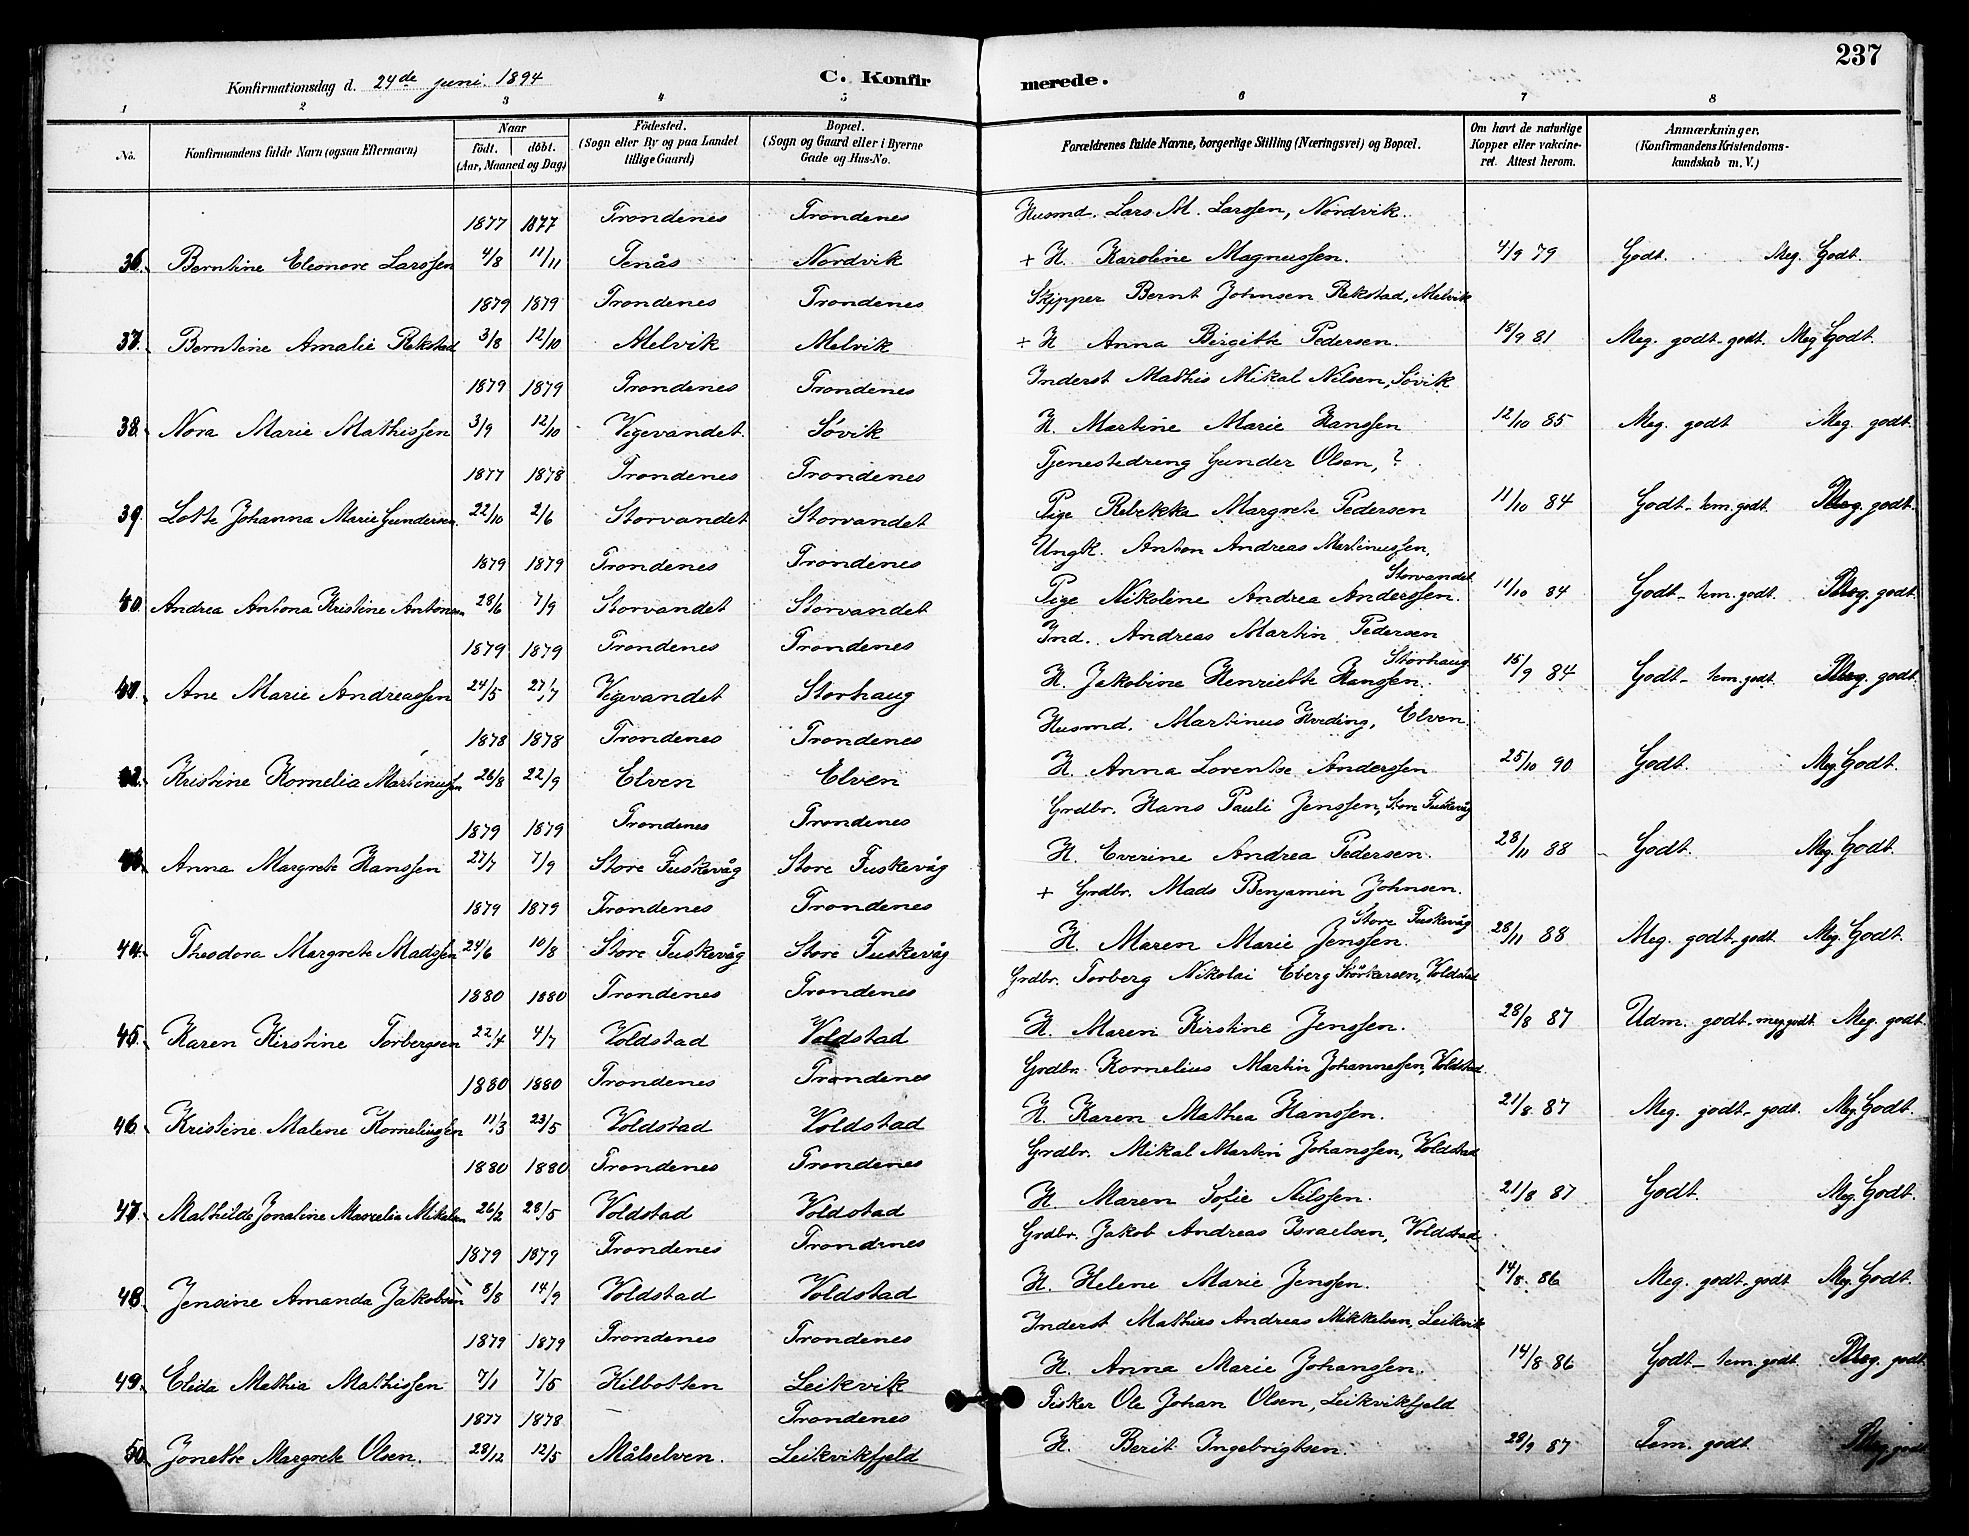 237
Konfirmationsdag d. 24de juni 1894 C. Konfirmerede.
1 2 3 4 5 6 7 8
No. Konfirmandens fulde Navn (ogsaa Efternavn) Naar födt. döbt. (Aar, Maaned og Dag) Födested. (Sogn eller By og paa Landet tillige Gaard) Bopæl. (Sogn og Gaard eller i Byerne Gade og Hus-No. Forældrenes fulde Navne, borgerlige Stilling (Næringsvei) og Bopæl. Om havt de naturlige Kopper eller vakcineret. Attest herom. Anmærkninger. (Konfirmandens Kristendomskundskab m. V.)
1877 1877 Trondenes Trondenes Husmd. Lars M. Larssen, Nordvik.
36. Berntine Eleonore Larssen 4/8 11/11 Tenås Nordvik + H. Karoline Magnussen. 4/9 79 Godt. Meg. Godt.
1879 1879 Trondenes Trondenes Skipper Bernt Johnsen Rekstad, Melvik
37. Berntine Amalie Rekstad 3/8 12/10 Melvik Melvik + H Anna Birgitte Pedersen. 18/9 81 Meg. godt-godt. Meg Godt.
1879 1879 Trondenes Trondenes Inderst Mathis Mikal Nilsen, Søvik
38. Nora Marie Mathissen 3/9 12/10 Vegevandet. Søvik H. Martine Marie Hanssen 12/10 85 Meg. godt Meg. godt.
1877 1878 Trondenes Trondenes Tjenestedreng Gunder Olsen, ?
39. Lotte Johanna Marie Gundersen. 22/10 2/6 Storvandet Storvandet Pige Rebekka Margrete Pedersen 11/10 84 Godt-tem. godt. Meg. godt.
1879 1879 Trondenes Trondenes Ungk. Anton Andreas Martinussen, Storvandet
40. Andrea Antona Kristine Antonsen 28/6 7/9 Storvandet Storvandet Pige Nikoline Andrea Anderssen. 11/10 84 Godt-tem. godt. Meg. godt.
1879 1879 Trondenes Trondenes Ind. Andreas Martin Pedersen Storhaug
41. Ane Marie Andreassen 24/5 27/7 Vegevandet Storhaug H. Jakobine Henriette Hanssen. 15/9 84 Godt-tem. godt. Meg. godt.
1878 1878 Trondenes Trondenes Husmd. Martinus Hveding, Elven.
42. Kristine Kornelia Martinussen 26/8 22/9 Elven Elven H. Anna Lorentse Anderssen 25/10 90 Godt. Meg. Godt.
1879 1879 Trondenes Trondenes Grdbr. Hans Pauli Jenssen, Store Fuskevåg
43. Anna Margrete Hanssen 27/7 7/9 Store Fuskevåg Store Fuskevåg H. Everine Andrea Pedersen. 28/11 88 Godt. Meg. Godt.
1879 1879 Trondenes Trondenes + Grdbr. Mads Benjamin Johnsen. Store Fuskevåg
44. Theodora Margrete Madssen 24/6 10/8 Store Fuskevåg Store Fuskevåg H. Maren Marie Jenssen. 28/11 88 Meg. godt-godt. Meg. Godt.
1880 1880 Trondenes Trondenes Grdbr. Torberg Nikolai Eberg Störkersen, Voldstad
45. Karen Kirstine Torbergsen 22/4 4/7 Voldstad Voldstad H. Maren Kirstine Jenssen. 28/8 87 Udm. godt-meg. godt. Meg. godt.
1880 1880 Trondenes Trondenes Grdbr. Kornelius Martin Johannessen, Voldstad.
46. Kristine Malene Korneliussen 11/3 23/5 Voldstad Voldstad H. Karen Mathea Hanssen. 21/8 87 Meg. godt-godt. Meg. Godt.
1880 1880 Trondenes Trondenes Grdbr. Mikal Martin Johanssen, Voldstad
47. Mathilde Jonaline Marcelia Mikalsen 26/2 28/5 Voldstad Voldstad H. Maren Sofie Nilssen. 21/8 87 Godt. Meg. Godt.
1879 1879 Trondenes Trondenes Grdbr. Jakob Andreas Israelsen, Voldstad
48. Jensine Amanda Jakobsen 8/8 14/9 Voldstad Voldstad H. Helene Marie Jenssen. 14/8. 86 Meg. godt-godt Meg. Godt.
1879 1879 Trondenes Trondenes Inderst Mathias Andreas Mikkelsen, Leikvik
49. Elida Mathia Mathissen 7/1 7/5 Kilbotten Leikvik H. Anna Marie Johanssen. 14/8 86 Godt-tem. godt. Meg. godt.
1877 1878 Trondenes Fisker Ole Johan Olsen, Leikvikfjeld
50. Jonette Margrete Olsen. 28/12 12/5 Målselven. Leikvikfjeld H. Berit Ingebrigtsen. 28/9 87 Tem. godt. Meg. godt.